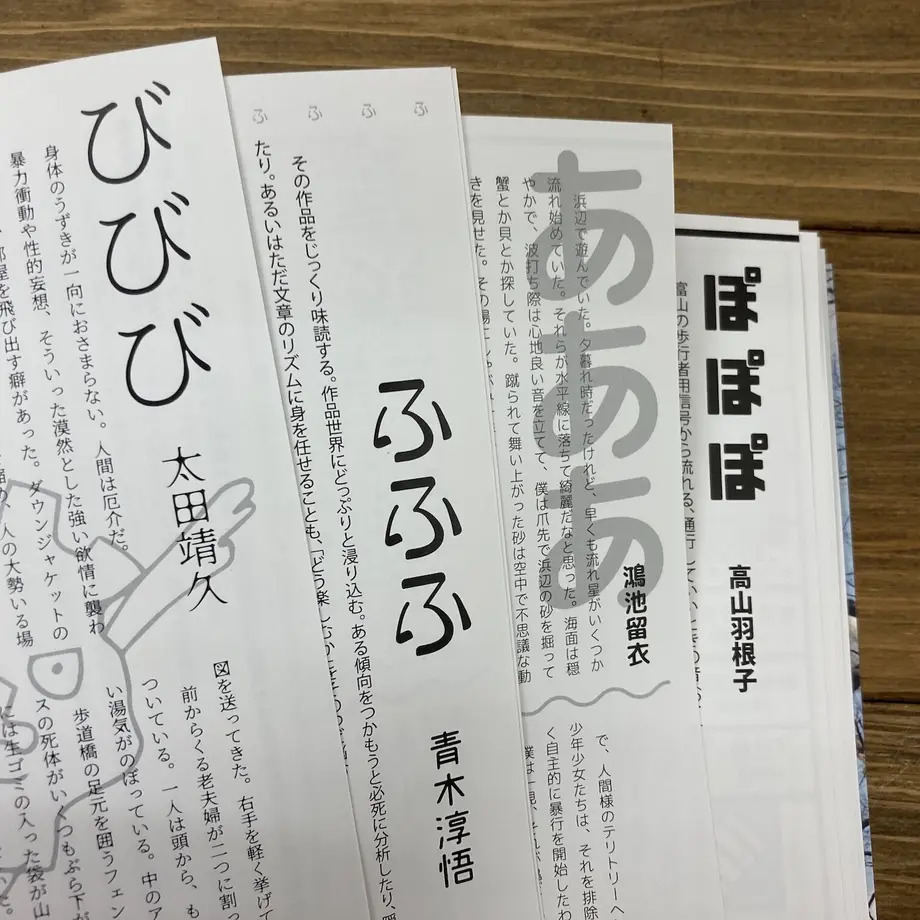 びびび
太田靖久
身体のうずきが一向におさまらない。人間は厄介だ。
暴力衝動や性的妄想、そういった漠然とした強い欲情に襲わ
部屋を飛び出す癖があった。ダウンジャケットの
人の大勢いる場
図を送ってきた。右手を軽く挙げて
前からくる老夫婦が二つに割っ
ついている。一人は頭から、も
い湯気がのぼっている。中のア
歩道橋の足元を囲うフェン
スの死体がいくつもぶら下が
には生ゴミの入った袋が山
ふ ふ ふ ふ
ふふふ
青木淳悟
その作品をじっくり味読する。作品世界にどっぷりと浸り込む。ある傾向をつかもうと必死に分析したり、
たり。あるいはただ文章のリズムに身を任せることも、「どう楽し
あああ
鴻池留衣
浜辺で遊んでいた。夕暮れ時だったけれど、早くも流れ星がいくつか
流れ始めていた。それらが水平線に落ちて綺麗だなと思った。海面は穏
やかで、波打ち際は心地良い音を立てて、僕は爪先で浜辺の砂を掘って
蟹とか貝とか探していた。蹴られて舞い上がった砂は空中で不思議な動
きを見せた。その場
で、人間様のテリトリーへ
少年少女たちは、それを排除
く自主的に暴行を開始したわ
ぽぽぽ
高山羽根子
富山の歩行者用信号から流れる、通行